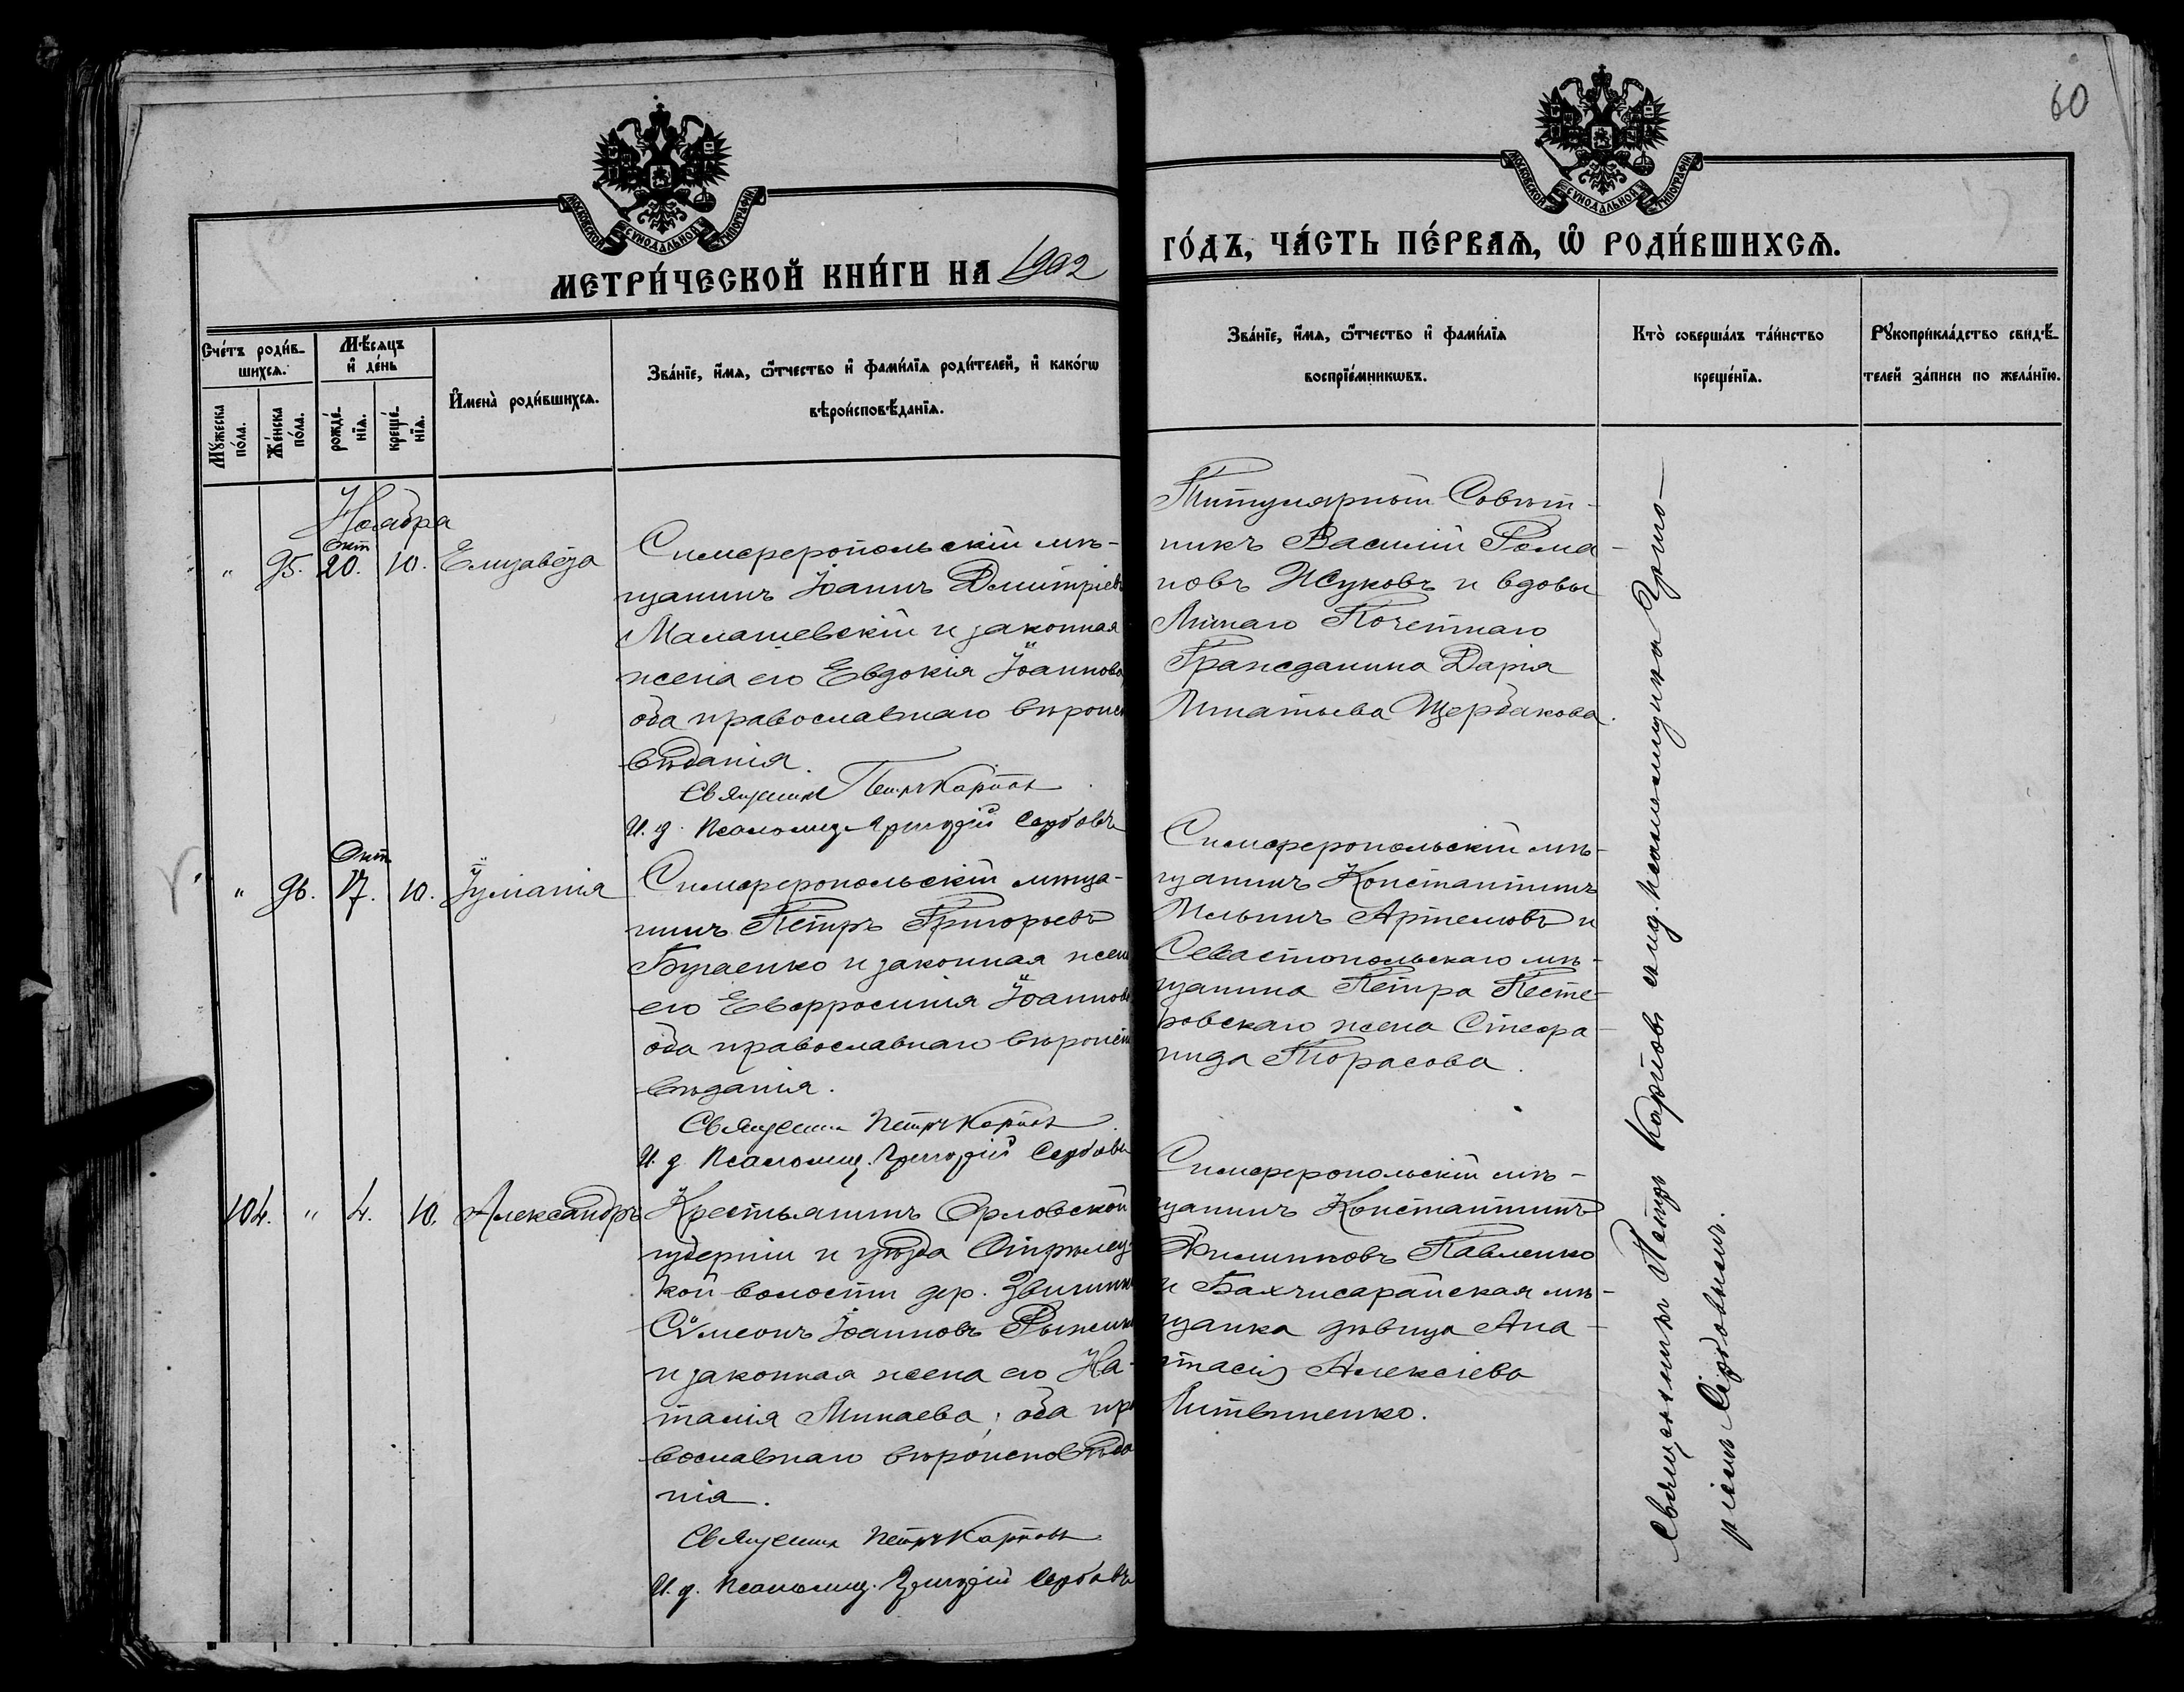 60
МОСКОВСКОЙ СѴНОДАЛЬНОЙ ТИПОГРАФІИ
МОСКОВСКОЙ СѴНОДАЛЬНОЙ ТИПОГРАФІИ
МЕТРИ́ЧЕСКОЙ КНИ́ГИ НА 1902
ГО́ДЪ, ЧА́СТЬ ПЕ́РВАѦ, Ѿ РОДИ́ВШИХСѦ.
Сче́тъ роди́в-
шихсѧ.
Мꙋ́жеска
по́ла.
Же́нска
по́ла.
Мѣ́сѧцъ
и҆ де́нь
рожде́-
нїѧ.
креще́-
нїѧ.
И҆мена̀ роди́вшихсѧ.
Зва́нїе, и҆́мѧ, ѻ҆́тчество и҆ фами́лїѧ роди́телей, и҆ како́гѡ
вѣроисповѣ́данїѧ.
Зва́нїе, и҆́мѧ, ѻ҆́тчество и҆ фами́лїѧ
воспрїе́мникѡвъ.
Кто̀ соверша́лъ та́инство
креще́нїѧ.
Рꙋкоприкла́дство свидѣ́-
телей за́писи по жела́нїю.
Ноября
Окт
" 95. 20. 10. Елизавета
Симферопольскій мѣ-
щанинъ Іоаннъ Дмитріевъ
Малашевскій и законная
жена его Евдокія Іоаннова,
оба православнаго вѣроис
вѣданія.
Священникъ Петръ Карповъ
И. д. Псаломщ. Григорій Сербовъ
Титулярный Совѣт-
никъ Василій Рома-
новъ Жуковъ и вдовы
Личнаго Почетнаго
Гражданина Дарія
Игнатьева Щербакова.
Окт.
" 96. 17. 10. Іуліанія
Симферопольскій мѣща-
нинъ Петръ Григорьевъ
Бугаенко и законная жен
его Евфросинія Іоаннов
оба православнаго вѣроис
вѣданія.
Священникъ Петръ Карповъ
И. д. Псаломщ. Григорій Сербовъ
Симферопольскій мѣ-
щанинъ Константинъ
Ильинъ Артемовъ и
Севастопольскаго мѣ-
щанина Петра Несте-
ровскаго жена Стефа-
нида Торасова.
104. " 4. 10. Александръ
Крестьянинъ Орловской
губерніи и уѣзда Стрѣлец-
кой волости дер.
Сѵмеонъ Іоанновъ
и законная жена его На-
талія Минаева; оба пра
вославнаго вѣроисповѣда
нія.
Священникъ Петръ Карповъ
И. д. Псаломщ. Григорій Сербовъ
Симферопольскій мѣ-
щанинъ Константинъ
Филипповъ Павленко
и Бахчисарайская мѣ-
щанка дѣвица Ана-
стасія Алексіева
Литвиненко.
Священникъ Петръ Карповъ съ и. д. псаломщика Григо-
ріемъ Сербовымъ.